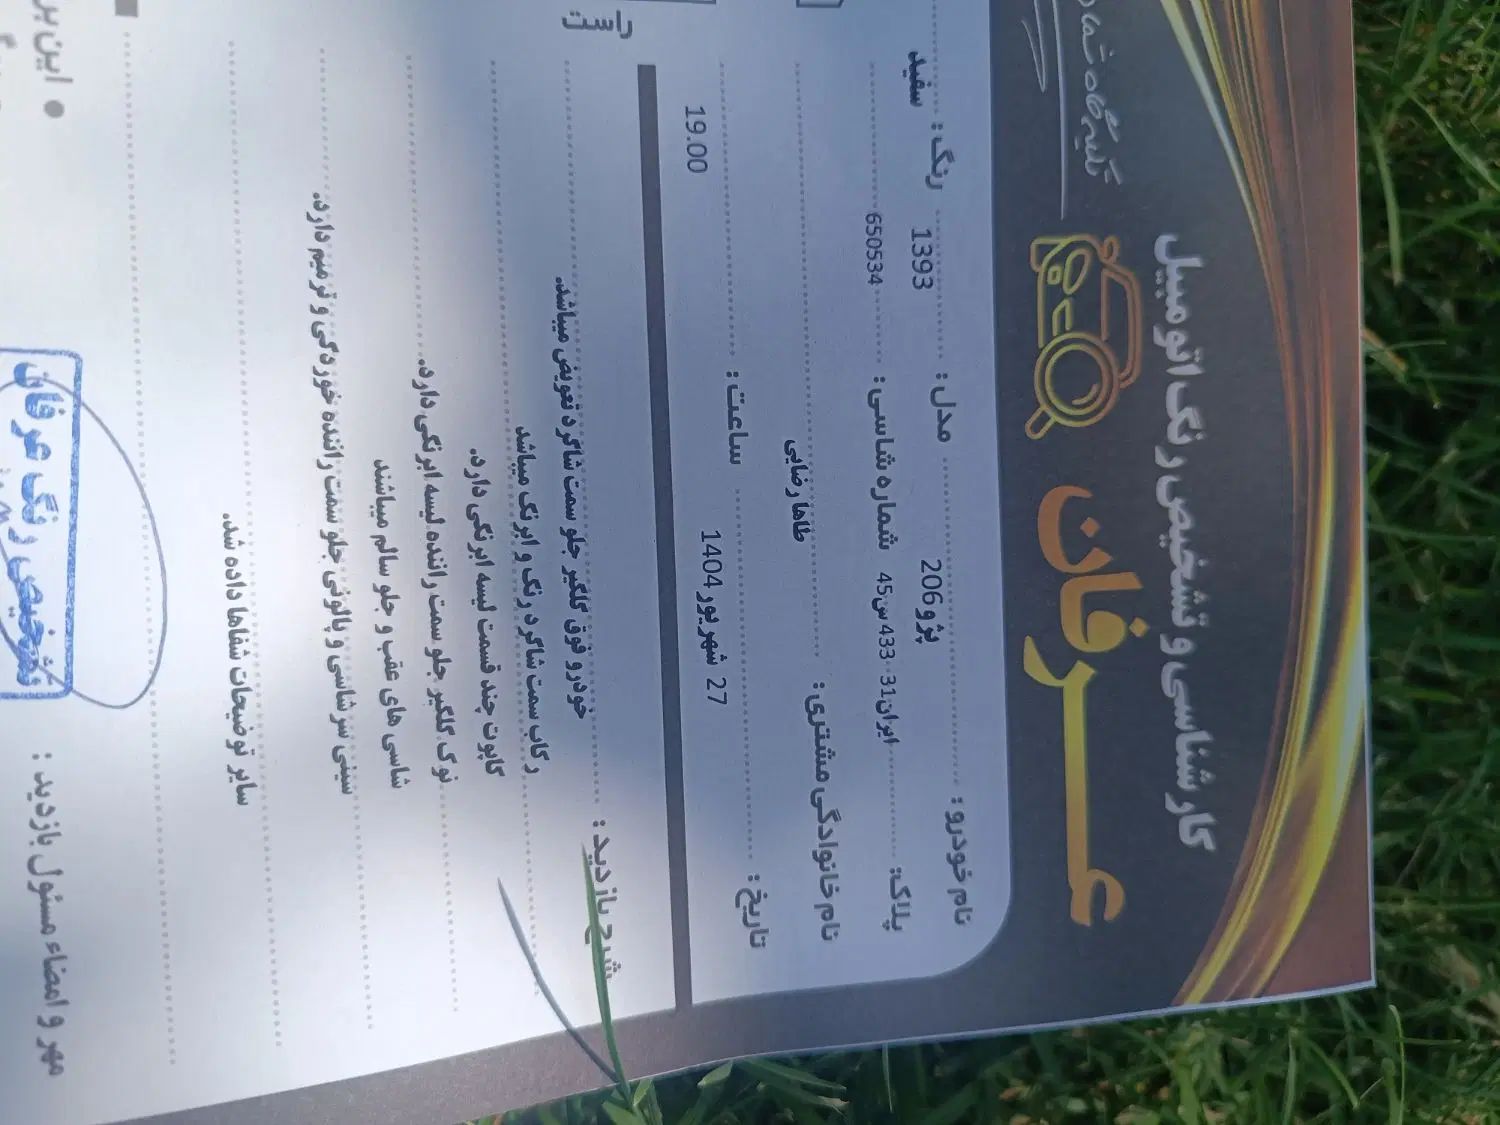 کارشناسی و تشخیص رنگ اتومبیل
عرفان
نام خودرو : پژو 206 مدل : 1393 رنگ : سفید
پلاک: ایران31 433س45 شماره شاسی : 650534
نام خانوادگی مشتری : طاها رضایی
تاریخ : 27 شهریور 1404 ساعت : 19.00
شرح بازدید :
خودرو فوق گلگیر جلو سمت شاگرد تعویض میباشد.
رکاب سمت شاگرد رنگ و ابرنگ میباشد
کاپوت چند قسمت لیسه ابرنگی دارد.
نوک گلگیر جلو سمت راننده لیسه ابرنگی دارد.
شاسی های عقب و جلو سالم میباشند
سینی سر شاسی و پالونی جلو سمت راننده خوردگی و ترمیم دارد.
سایر توضیحات شفاها داده شد.
مهر و امضاء مسئول بازدید :
تشخیص رنگ عرفان
• این بر